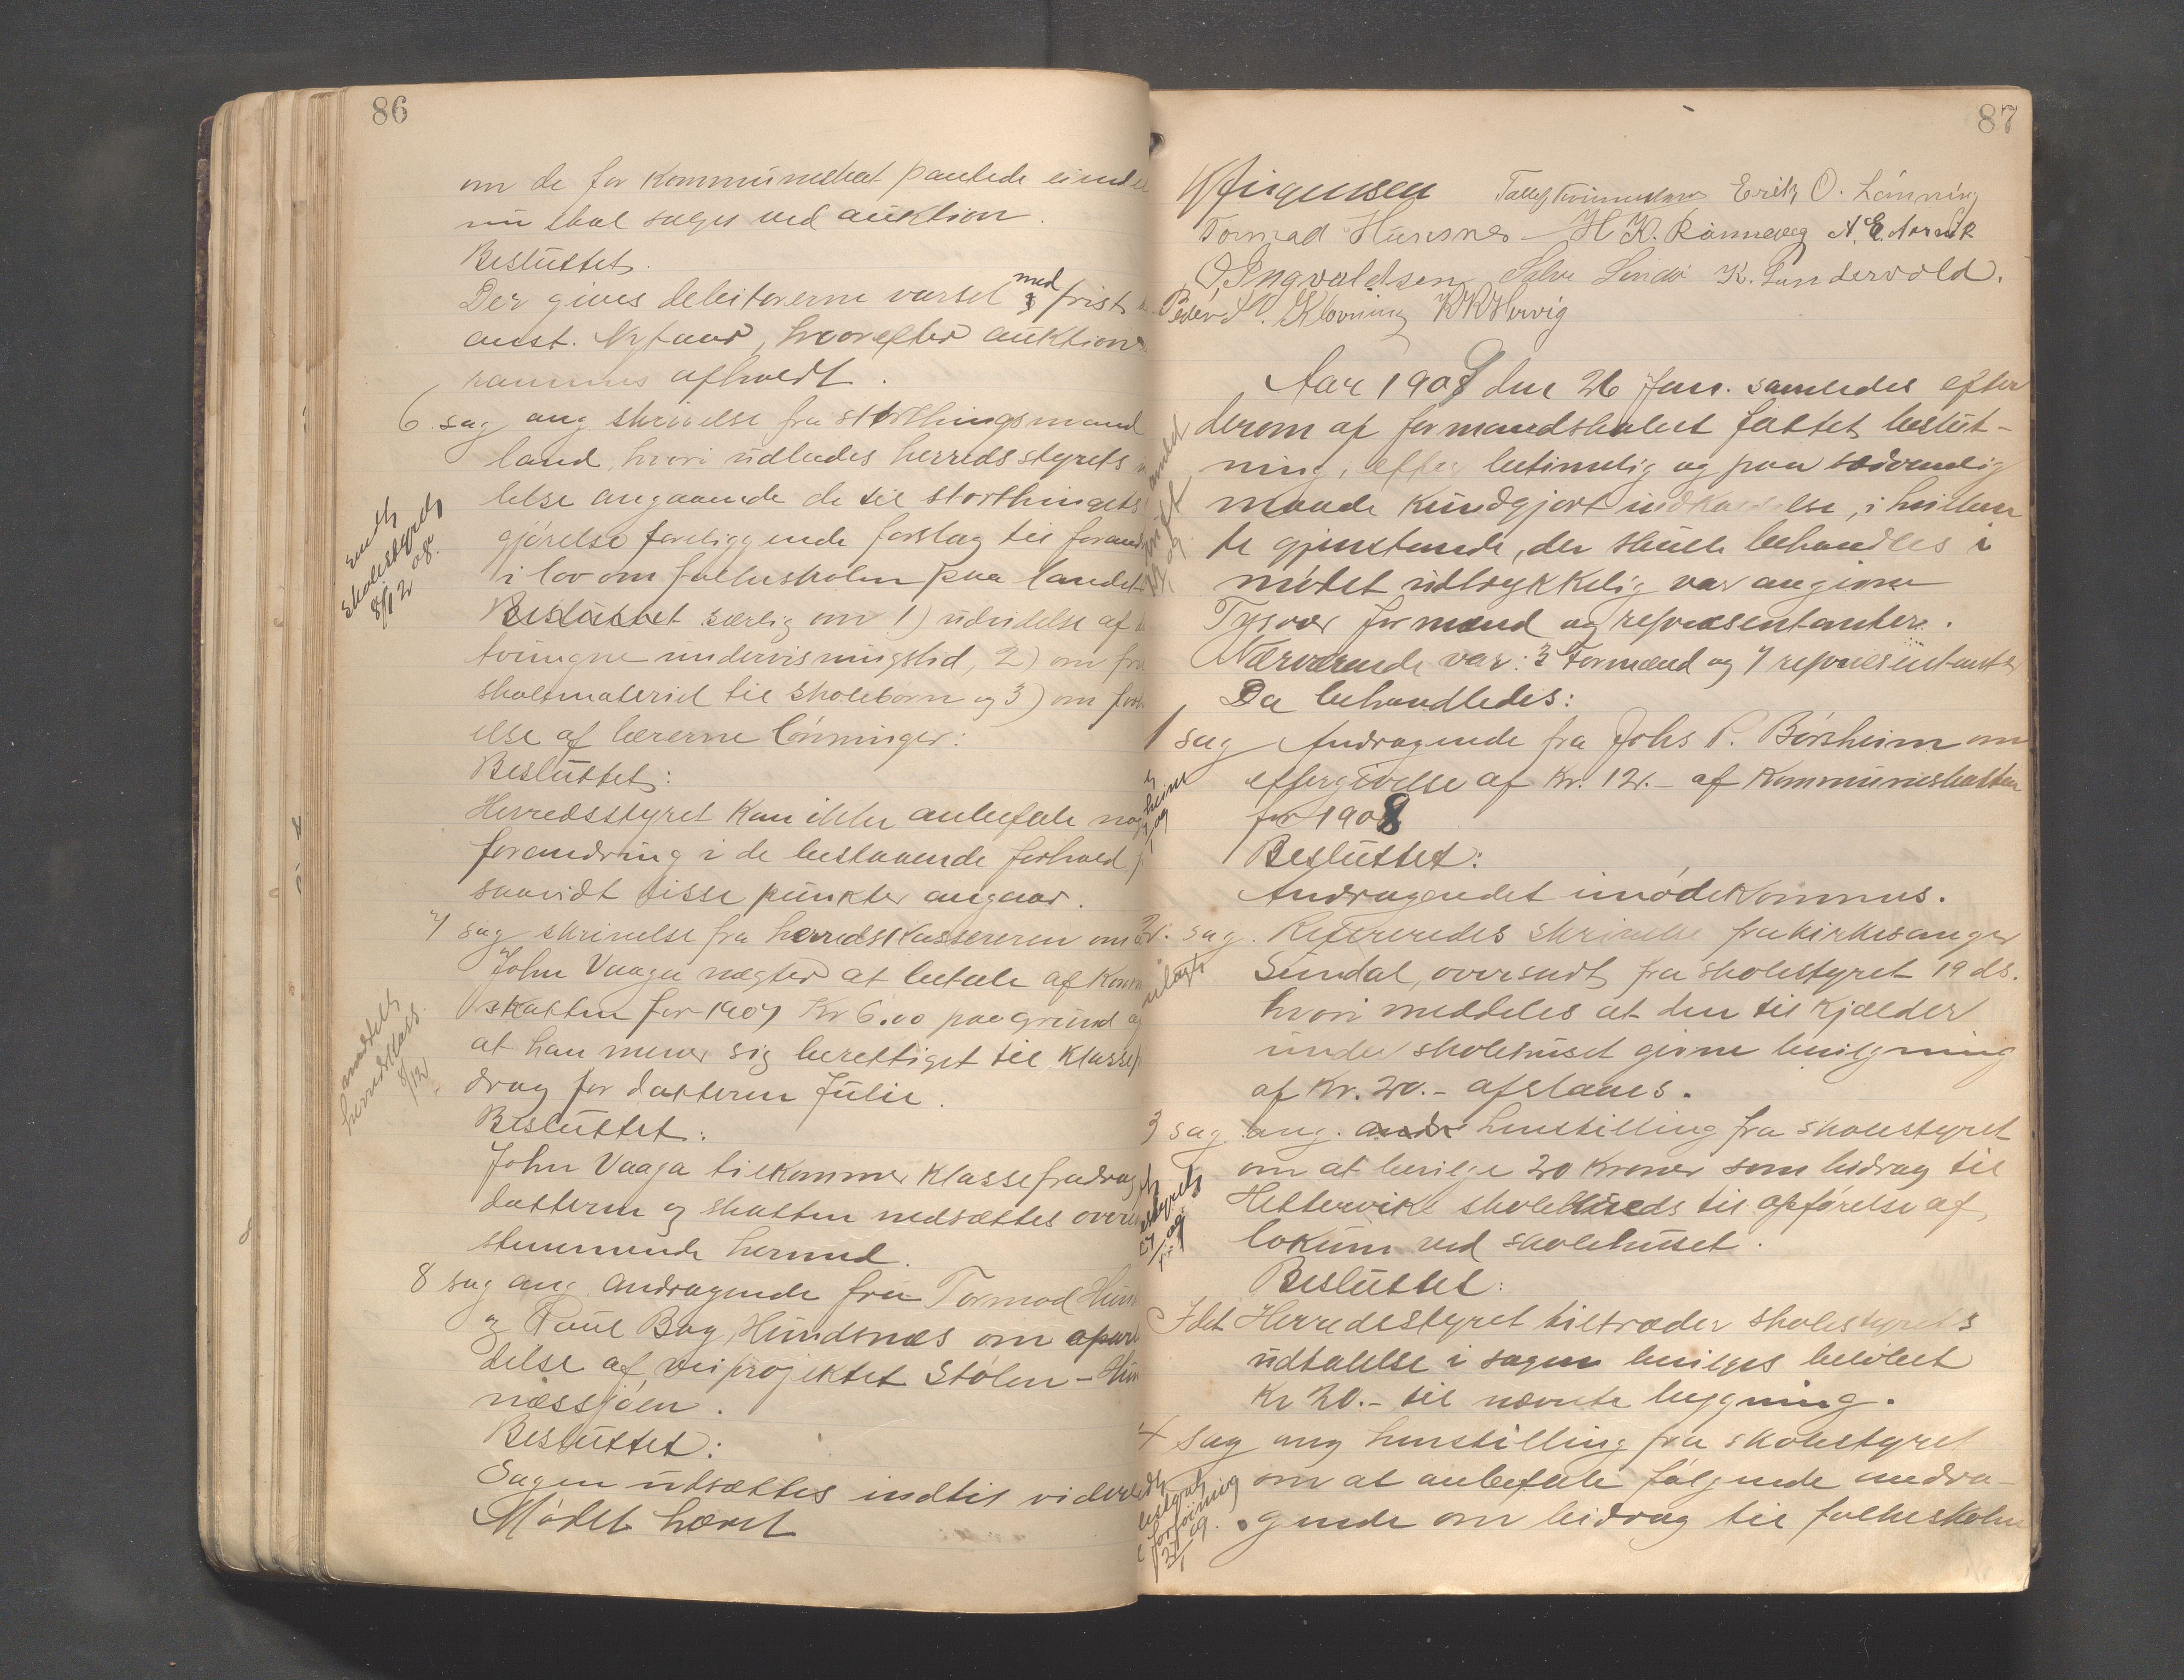 86
om de for Kommuneskat pantede eiend
nu skal sælges ved auktion.
Besluttet.
Der gives debitorerne varsel med frist
anst. Nytaar, hvorefter auktion
rammes afholdt.
6 sag ang skrivelse fra storthingsmand
land, hvori udbedes herredsstyrets
lelse angaaende de til storthingets
gjörelse foreliggende forslag til forand
i lov om folkeskolen paa landet
Besluttet særlig om 1) udvidelse af
tvungne undervisningstid, 2) om fri
skolemateriel til skolebörn og 3) om for
else af lærerne lönninger:
Besluttet:
Herredsstyret kan ikke anbefale no
forandring i de bestaaende forhold,
saavidt disse punkter angaar.
7 sag skrivelse fra herredskassereren om
John Vaaga nægter at betale af Kom
skatten for 1907 Kr 6.00 paa grund a
at han mener sig berettiget til Klassef
drag for datteren Julie.
Besluttet:
John Vaaga tilkommer Klassefradrag
datteren og skatten nedsættes overe
stemmende hermed.
8 sag ang andragende fra Tormod Hun
og Poul Bag Hundsnæs om opar
delse af veiprojektet Stölen - Hun
næssjöen.
Besluttet:
Sagen udsættes indtil videre
Mödet hævet
sendt
skolestyret
8/12 08.
anmeldt
herredskass.
8/12
87
Jörgensen Erik O. Lönning
Tormod Hunsnes H K. Rönnevig A. E. Aarvik
O. Ingvaldsen K. Sundervold.
Peder S. Klovning K K Hervig
Aar 1908 den 26 Jan. samledes efter
derom af formandskabet fattet beslut-
ning, efter betimelig og paa sædvanlig
maade kundgjort indkaldelse, i hvilken
de gjenstande, der skulle behandles i
mödet udtrykkelig var angivne
Tysvær formænd og repræsentanter.
Nærværende var: 3 Formænd og 7 repræsentanter
Da behandledes:
1 sag Andragende fra Johs P. Börsheim om
eftergivelse af Kr. 12.- af Kommuneskatten
for 1908
Besluttet:
Andragendet imödekommes.
2. sag. Refereredes skrivelse fra kirkesanger
Sundal, oversendt fra skolestyret 19 ds.
hvori meddeles at den til kjælder
under skolehuset givne bevilgning
af Kr. 20.- afslaaes.
3 sag ang. henstilling fra skolestyret
om at bevilge 20 Kroner som bidrag til
Hettervik skolekreds til opförelse af
lokum ved skolehuset.
Besluttet:
Idet Herredsstyret tiltræder skolestyrets
udtalelse i sagen bevilges belöbet
Kr 20.- til nævnte bygning.
4 sag ang henstilling fra skolestyret
om at anbefale fölgende andra-
gende om bidrag til folkeskolen